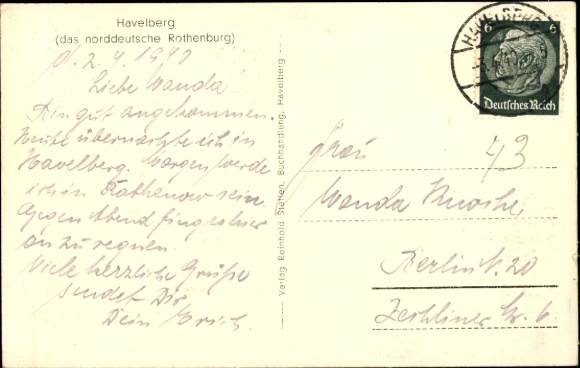 Havelberg
(das norddeutsche Rothenburg)
d. 2. 4. 1940
Liebe Wanda!
Bin gut angekommen.
Heute übernachte ich in
Havelberg. Morgen werde
ich in Rathenow sein.
Gegen Abend fing es
an zu regnen.
Viele herzliche Grüße
sendet Dir
Dein Erich.
Verlag Reinhold Stetten, Buchhandlung, Havelberg
HAVELBERG
6 6
Deutsches Reich
Frau
43
Wanda
Berlin N. 20
Str. 6